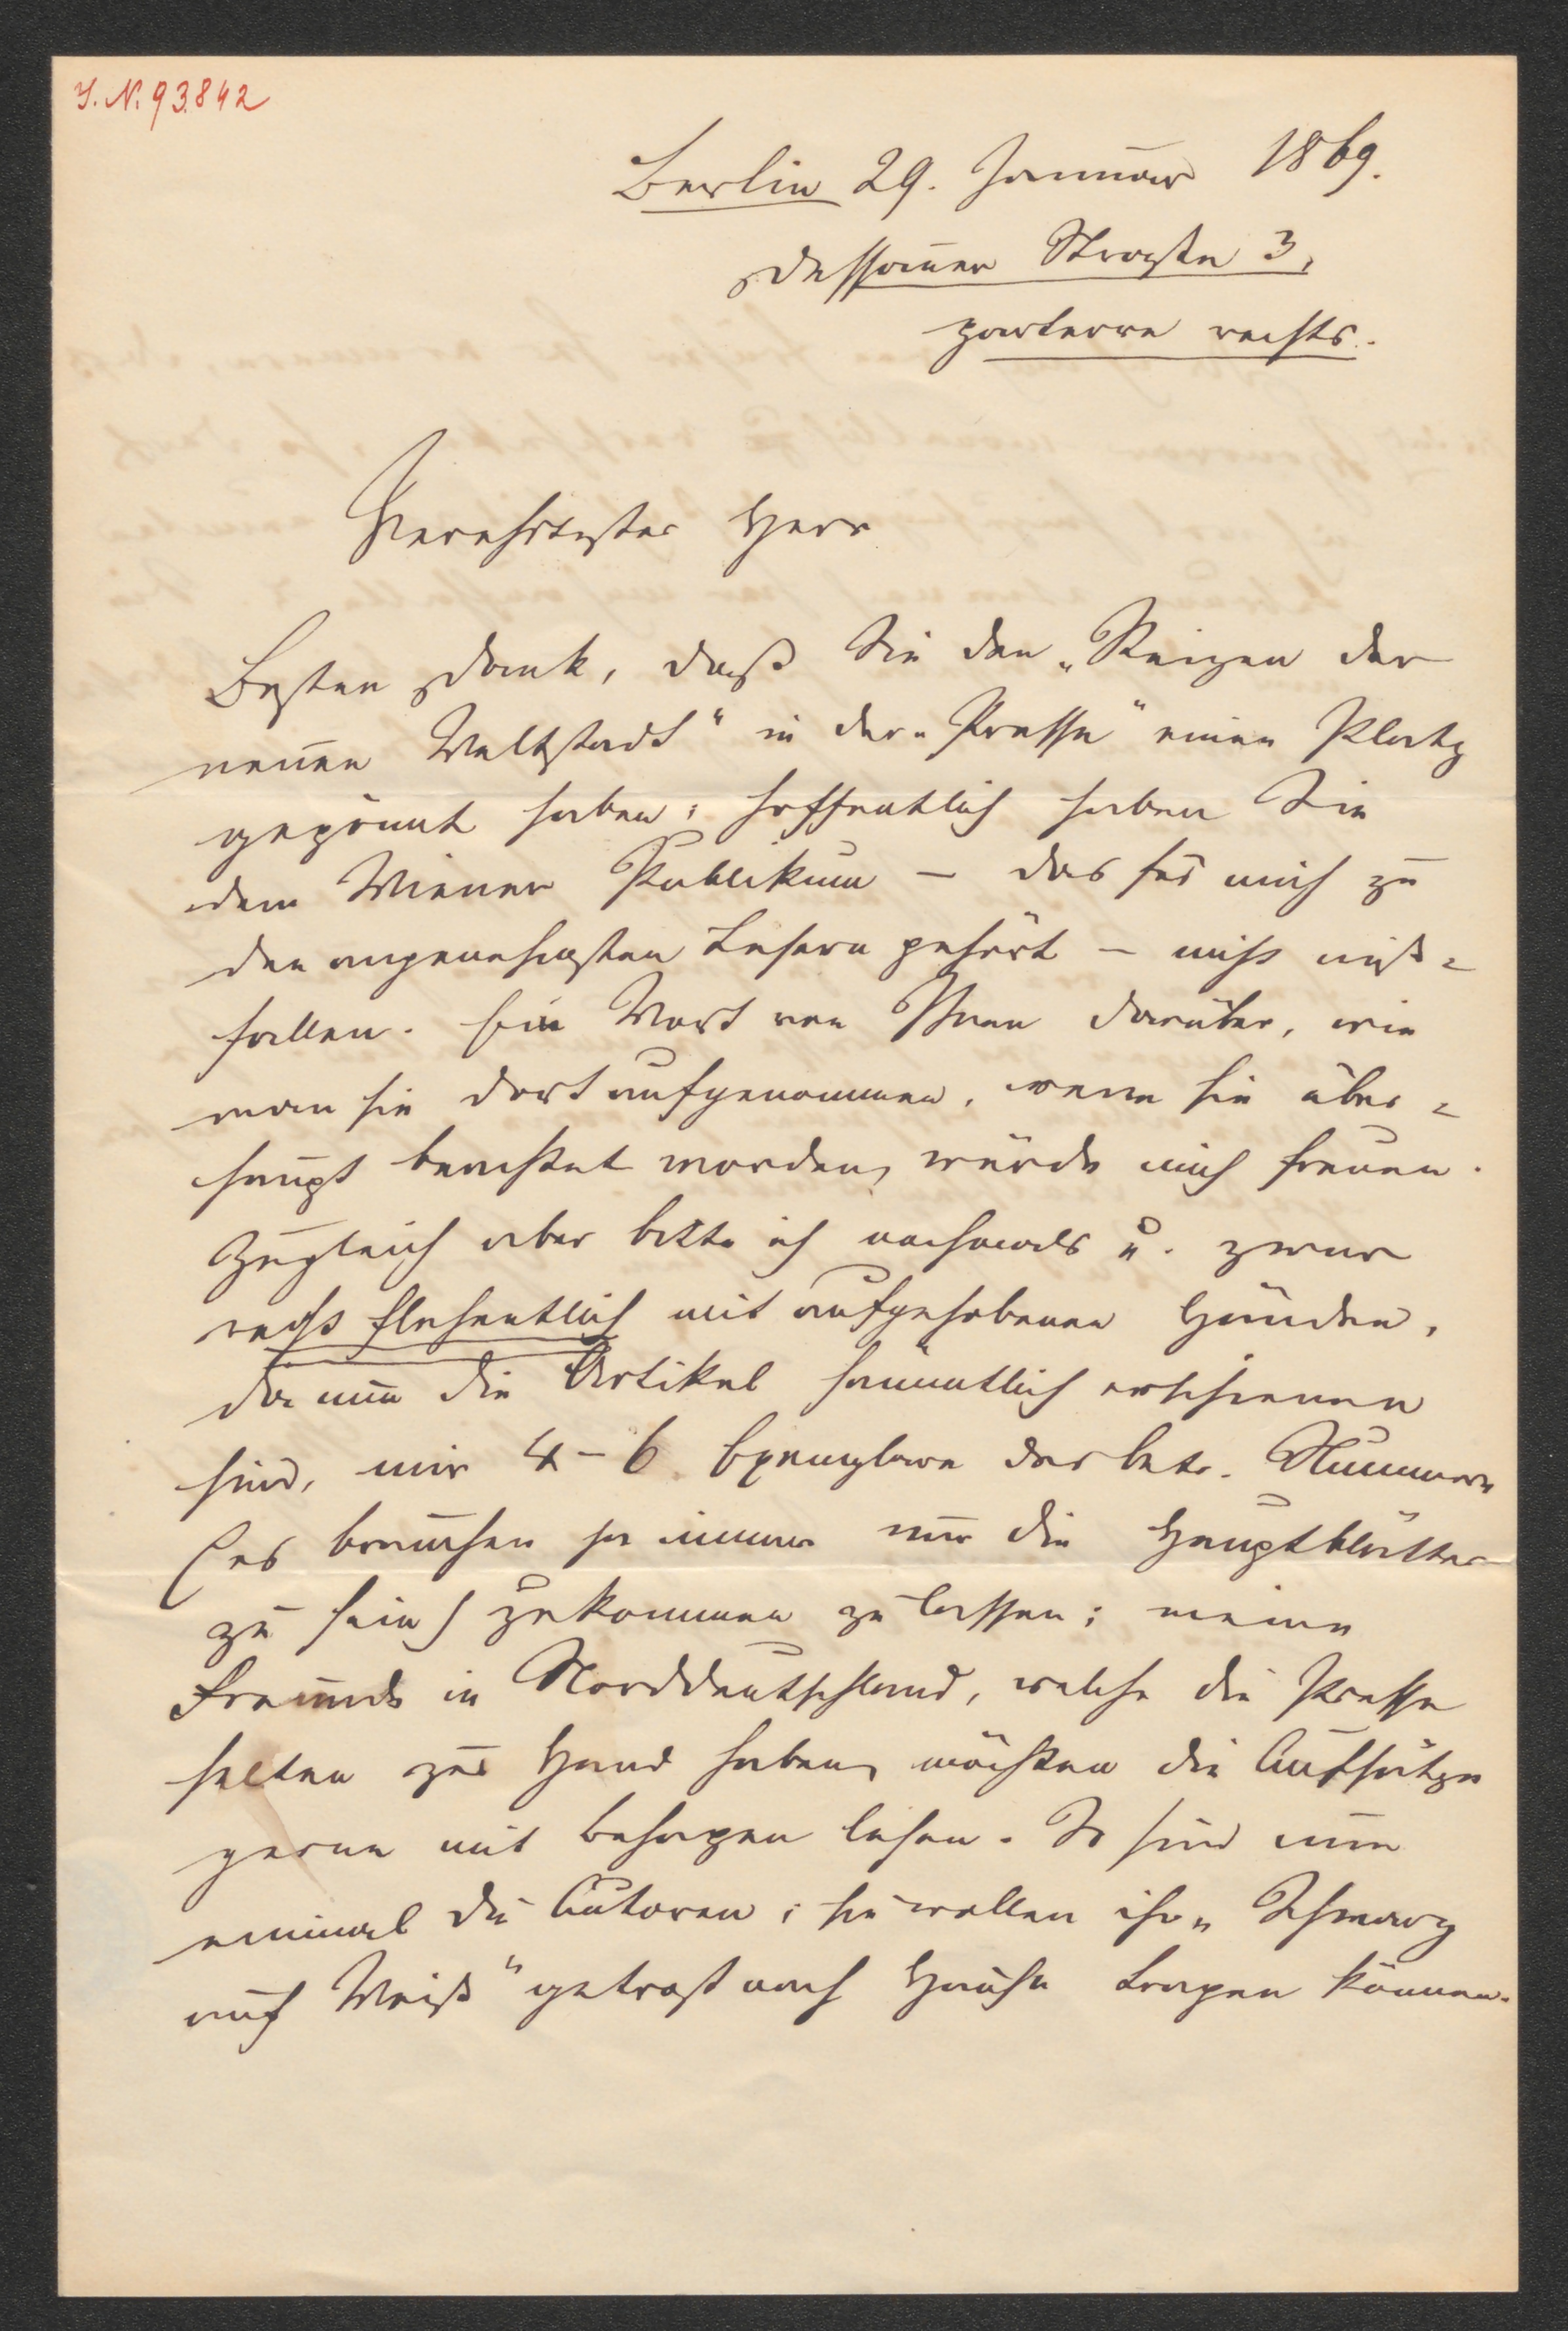 I. N. 93.842
Berlin 29. Januar 1869.
Dessauer Straße 3,
parterre rechts.
Verehrtester Herr
Besten Dank, daß Sie den „Reizen der
neuen Weltstadt“ in der „Presse“ einen Platz
gegönnt haben; hoffentlich haben Sie
dem Wiener Publikum – das für mich zu
den angenehmsten Lesern gehört – nicht miß-
fallen. Ein Wort von Ihnen darüber, wie
man sie dort aufgenommen, wenn sie über-
haupt beachtet worden, würde mich freuen.
Zugleich aber bitte ich nochmals u. zwar
recht flehentlich mit aufgehobenen Händen,
da nun die Artikel sämmtlich erschienen
sind, mir 4–6 Exemplare der betr. Nummern
(es brauchen ja immer nur die Hauptblätter
zu sein) zukommen zu lassen; meine
Freunde in Norddeutschland, welche die Presse
selten zur Hand haben, möchten die Aufsätze
gerne mit Behagen lesen. So sind nun
einmal die Autoren; sie wollen ihr „Schwarz
auf Weiß“ getrost nach Hause tragen können.